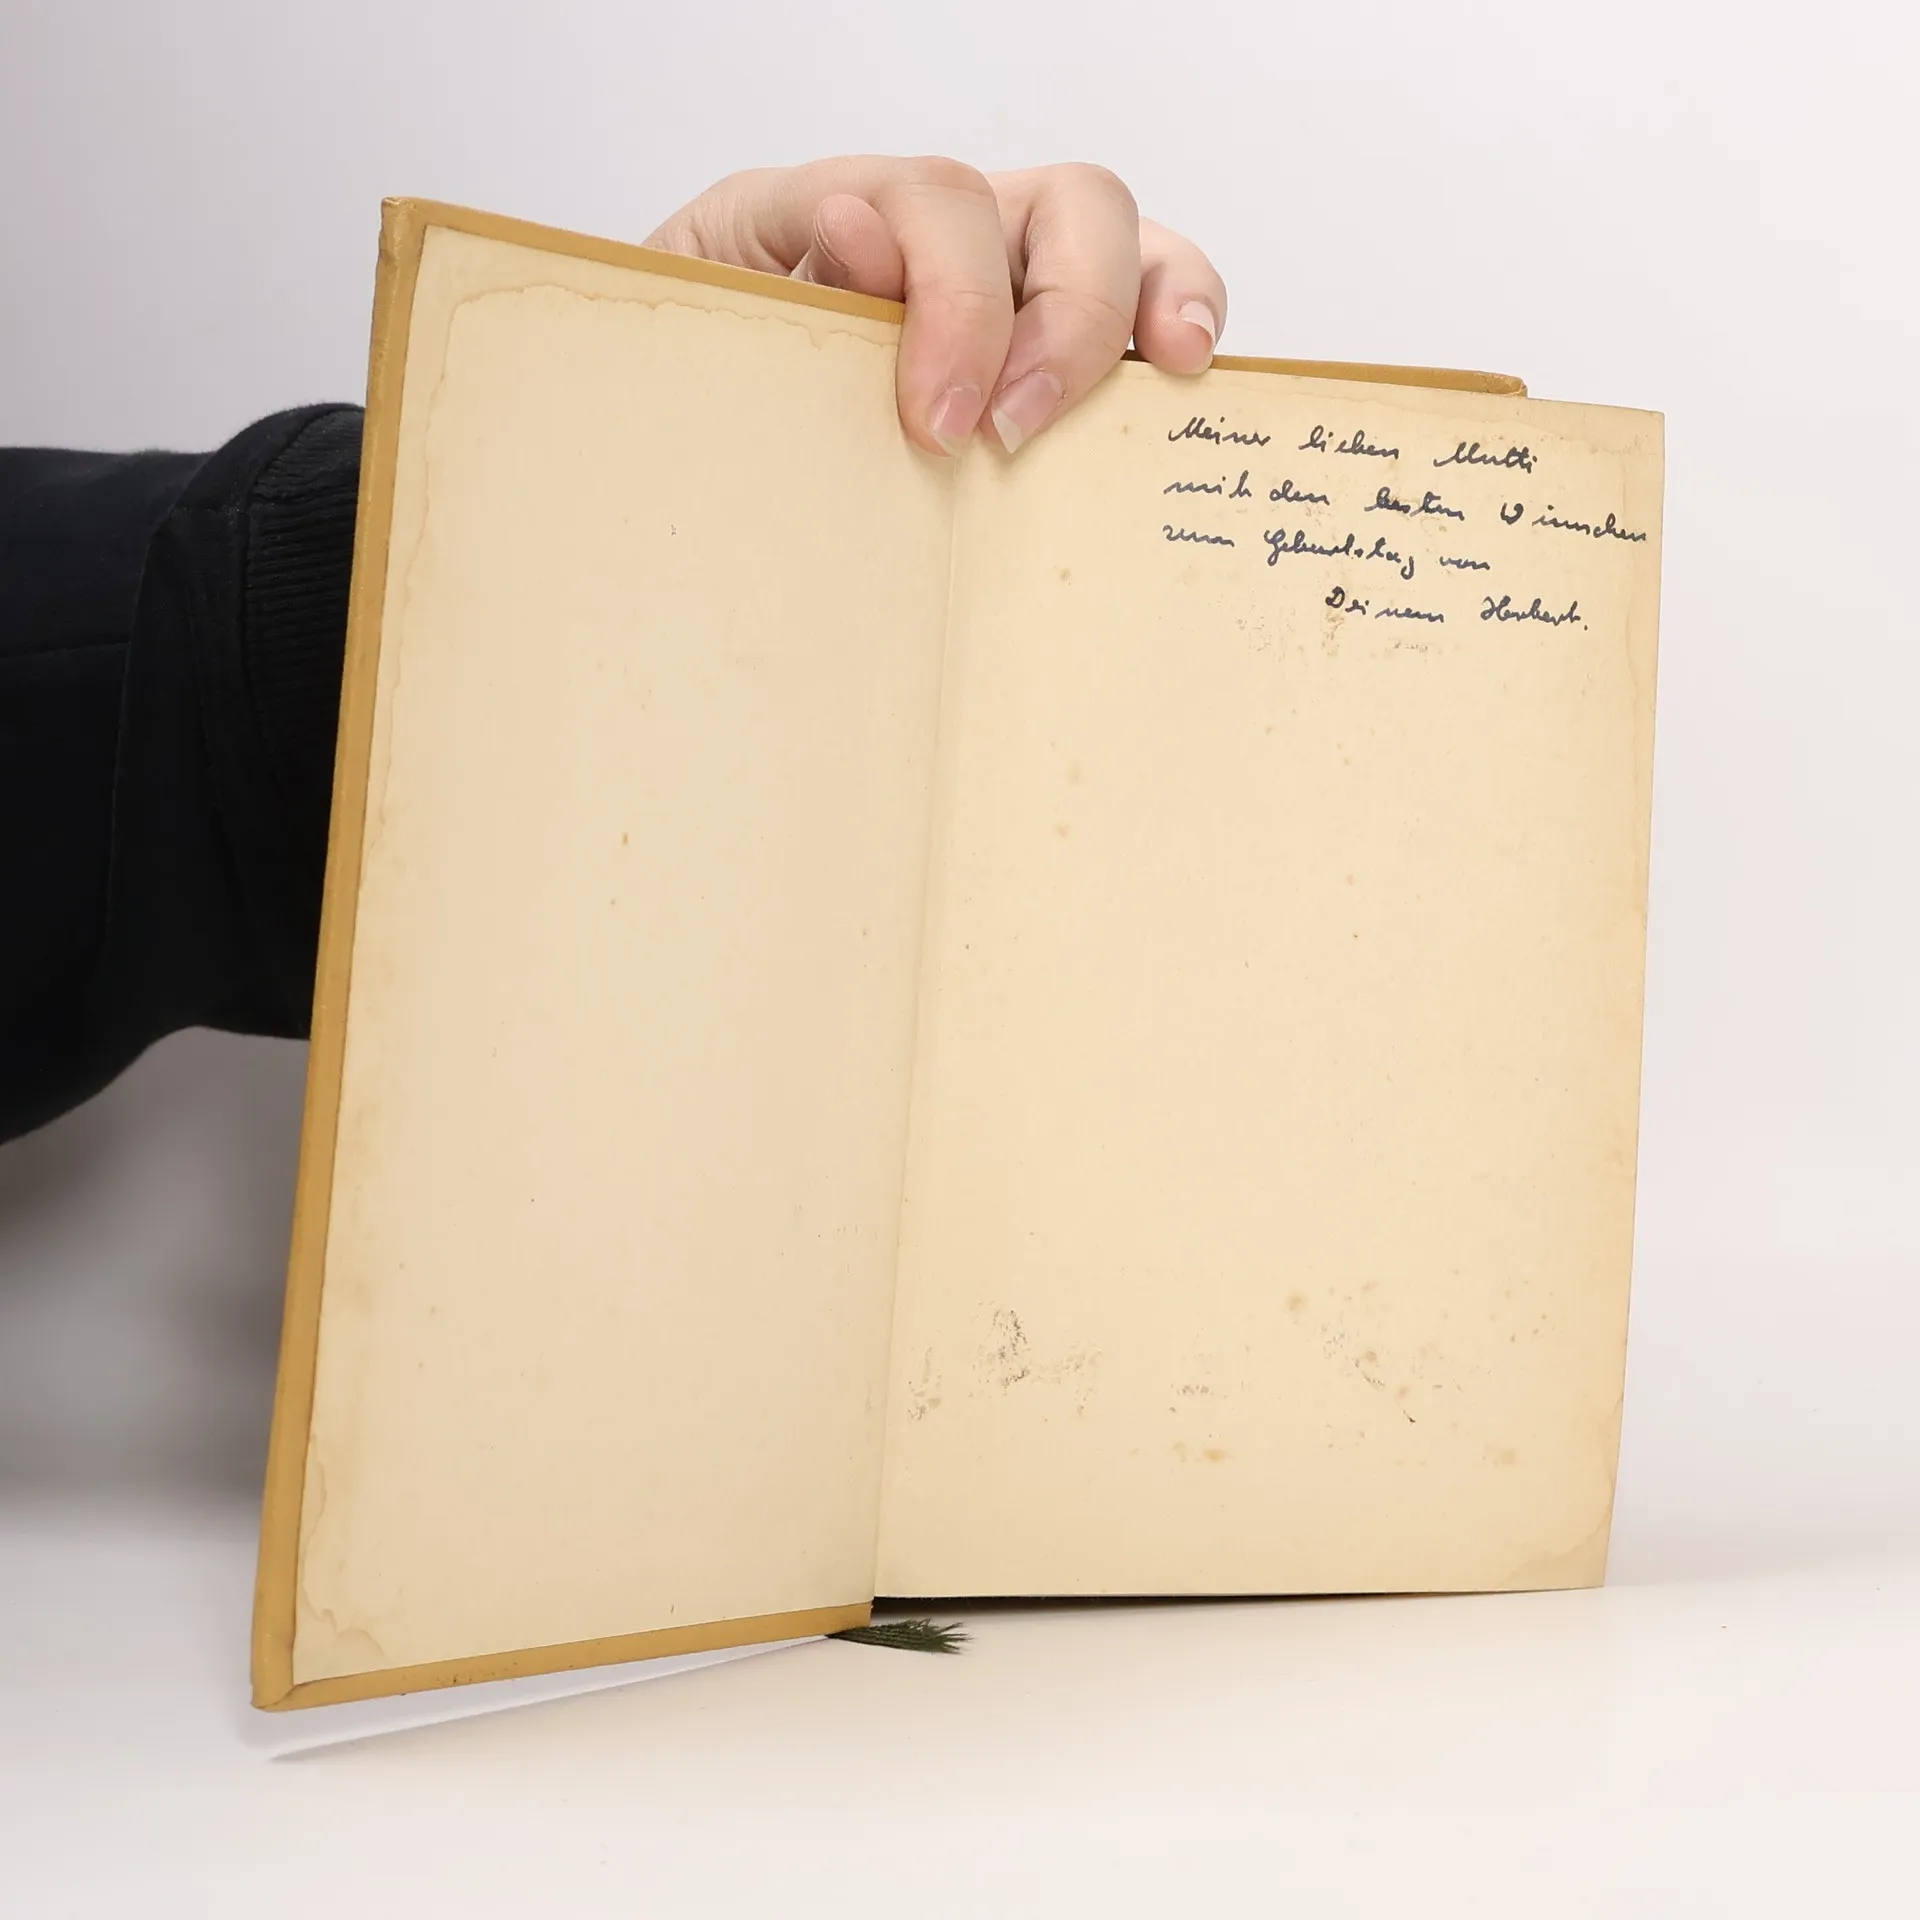 Meiner lieben Mutti
mit den besten Wünschen
zum Geburtstag von
Deinem Herbert.